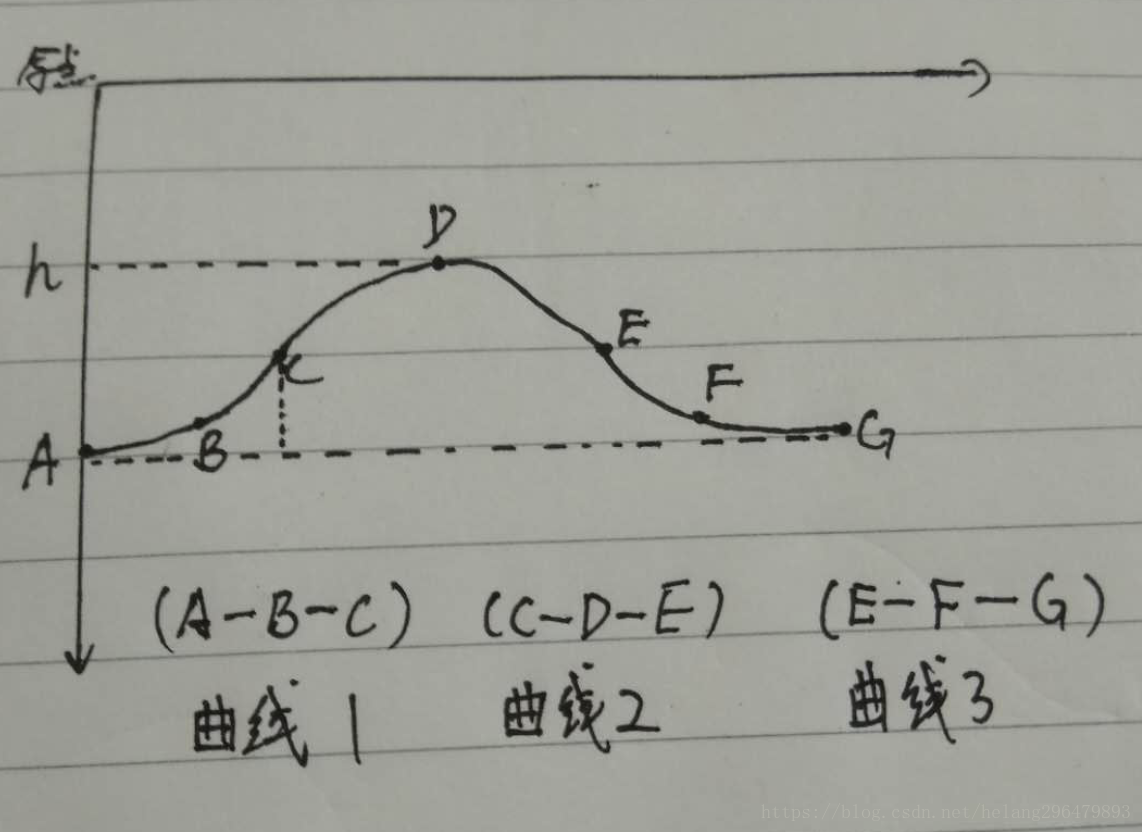 原点
D
h
E
C
F
A
B
G
(A-B-C) (C-D-E) (E-F-G)
曲线1 曲线2 曲线3
https://blog.csdn.net/helang296479893